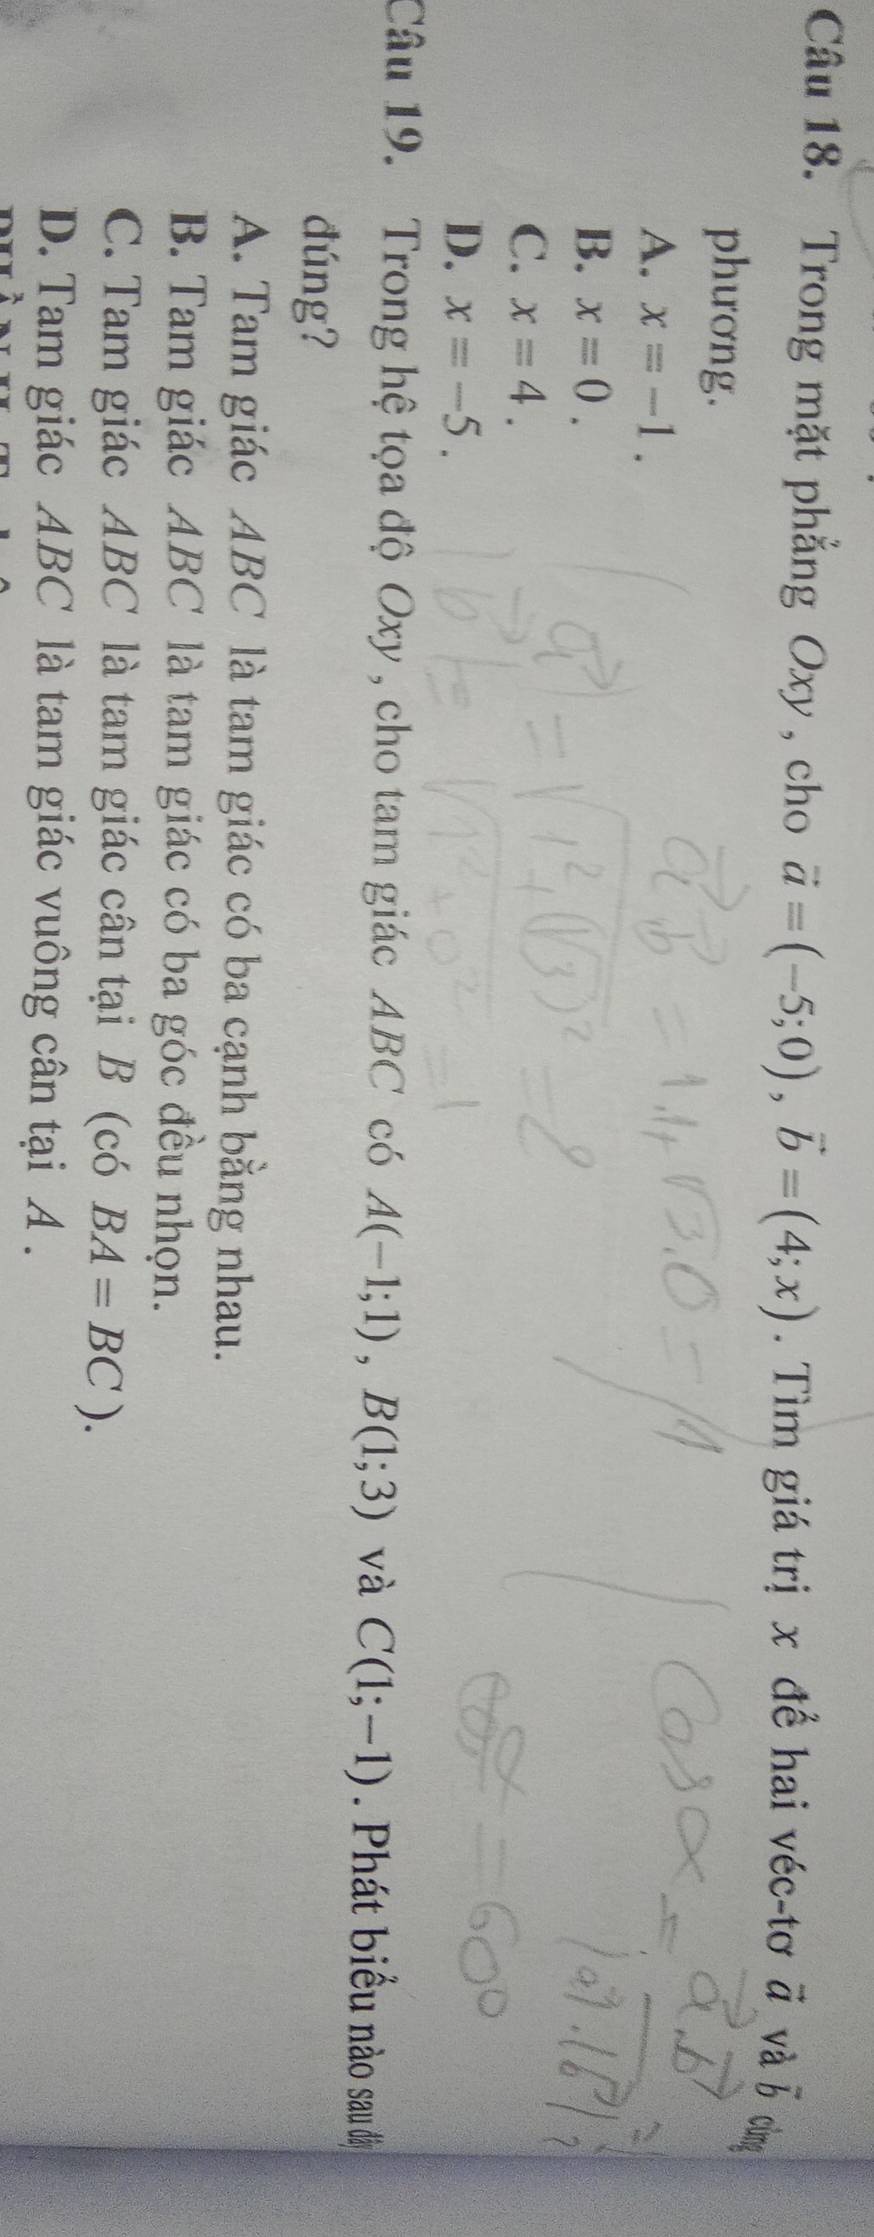 Câu 18. Trong mặt phẳng Oxy, cho a⃗ = (−5;0), b⃗ = (4;x). Tìm giá trị x để hai véc-tơ a⃗ và b⃗ cùng
phương.
A. x = −1.
B. x = 0.
C. x = 4.
D. x = −5.
a⃗.b⃗ = 1.1+√3.0 = 1
|a⃗| = √(1²+(√3)²) = 2
|b⃗| = √(1²+0²) = 1
Cos α = a⃗.b⃗ / |a⃗|.|b⃗|
α = 60°
Câu 19. Trong hệ tọa độ Oxy, cho tam giác ABC có A(−1;1), B(1;3) và C(1;−1). Phát biểu nào sau đây
đúng?
A. Tam giác ABC là tam giác có ba cạnh bằng nhau.
B. Tam giác ABC là tam giác có ba góc đều nhọn.
C. Tam giác ABC là tam giác cân tại B (có BA = BC).
D. Tam giác ABC là tam giác vuông cân tại A.